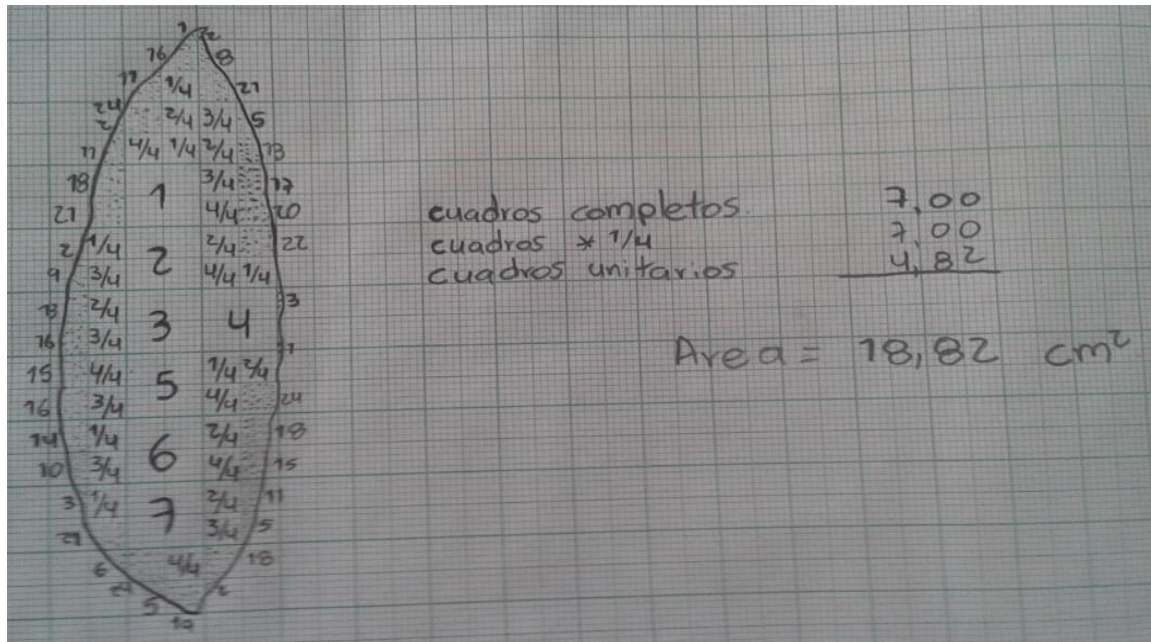 1 2
16 8
17 1/4 21
24 2/4 3/4 5
2
11 4/4 1/4 2/4 13
18 1 3/4 17
21 4/4 20
2 1/4 2 2/4 22
9 3/4 4/4 1/4
13 2/4 3 4 3
16 3/4 1
15 4/4 5 1/4 2/4
16 3/4 4/4 24
14 1/4 6 2/4 18
10 3/4 4/4 15
3 1/4 7 2/4 11
21 3/4 5
6 4/4 18
5 2
19
cuadros completos 7,00
cuadros * 1/4 7,00
cuadros unitarios 4,82
Area = 18,82 cm²